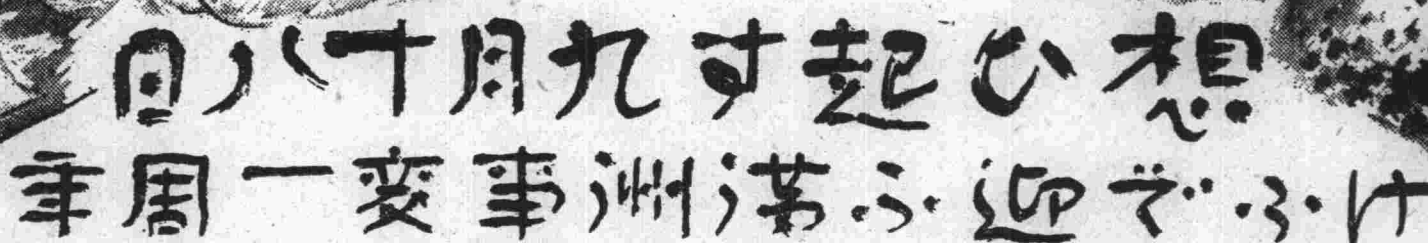 想ひ起す九月十八日
けふぞ迎ふ満洲事変一周年